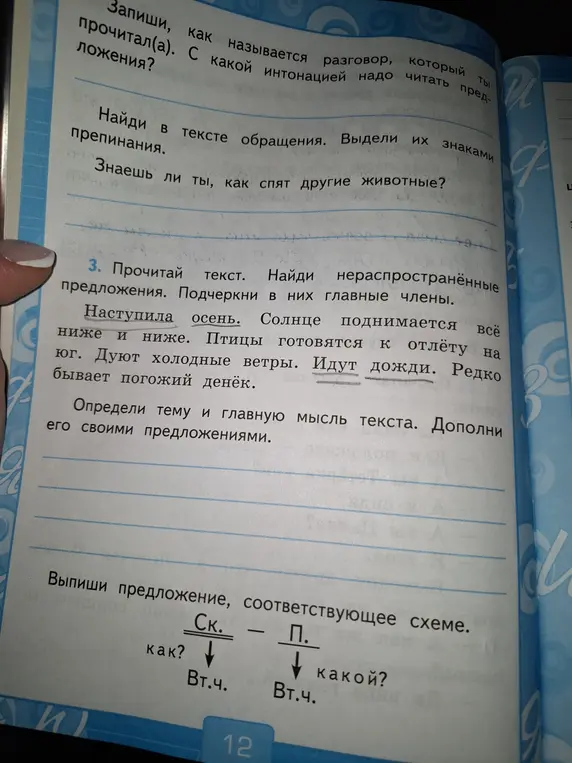 Запиши, как называется разговор, который ты
прочитал(а). С какой интонацией надо читать пред-
ложения?
Найди в тексте обращения. Выдели их знаками
препинания.
Знаешь ли ты, как спят другие животные?
3. Прочитай текст. Найди нераспространённые
предложения. Подчеркни в них главные члены.
Наступила осень. Солнце поднимается всё
ниже и ниже. Птицы готовятся к отлёту на
юг. Дуют холодные ветры. Идут дожди. Редко
бывает погожий денёк.
Определи тему и главную мысль текста. Дополни
его своими предложениями.
Выпиши предложение, соответствующее схеме.
Ск. — П.
как? какой?
Вт.ч. Вт.ч.
12